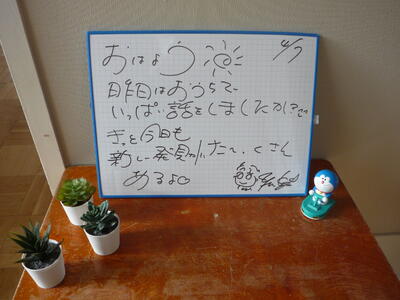 おはよう 4/7
昨日はおうちで
いっぱい話をしましたか?
きっと今日も
新しい発見がいたーくさん
あるよ